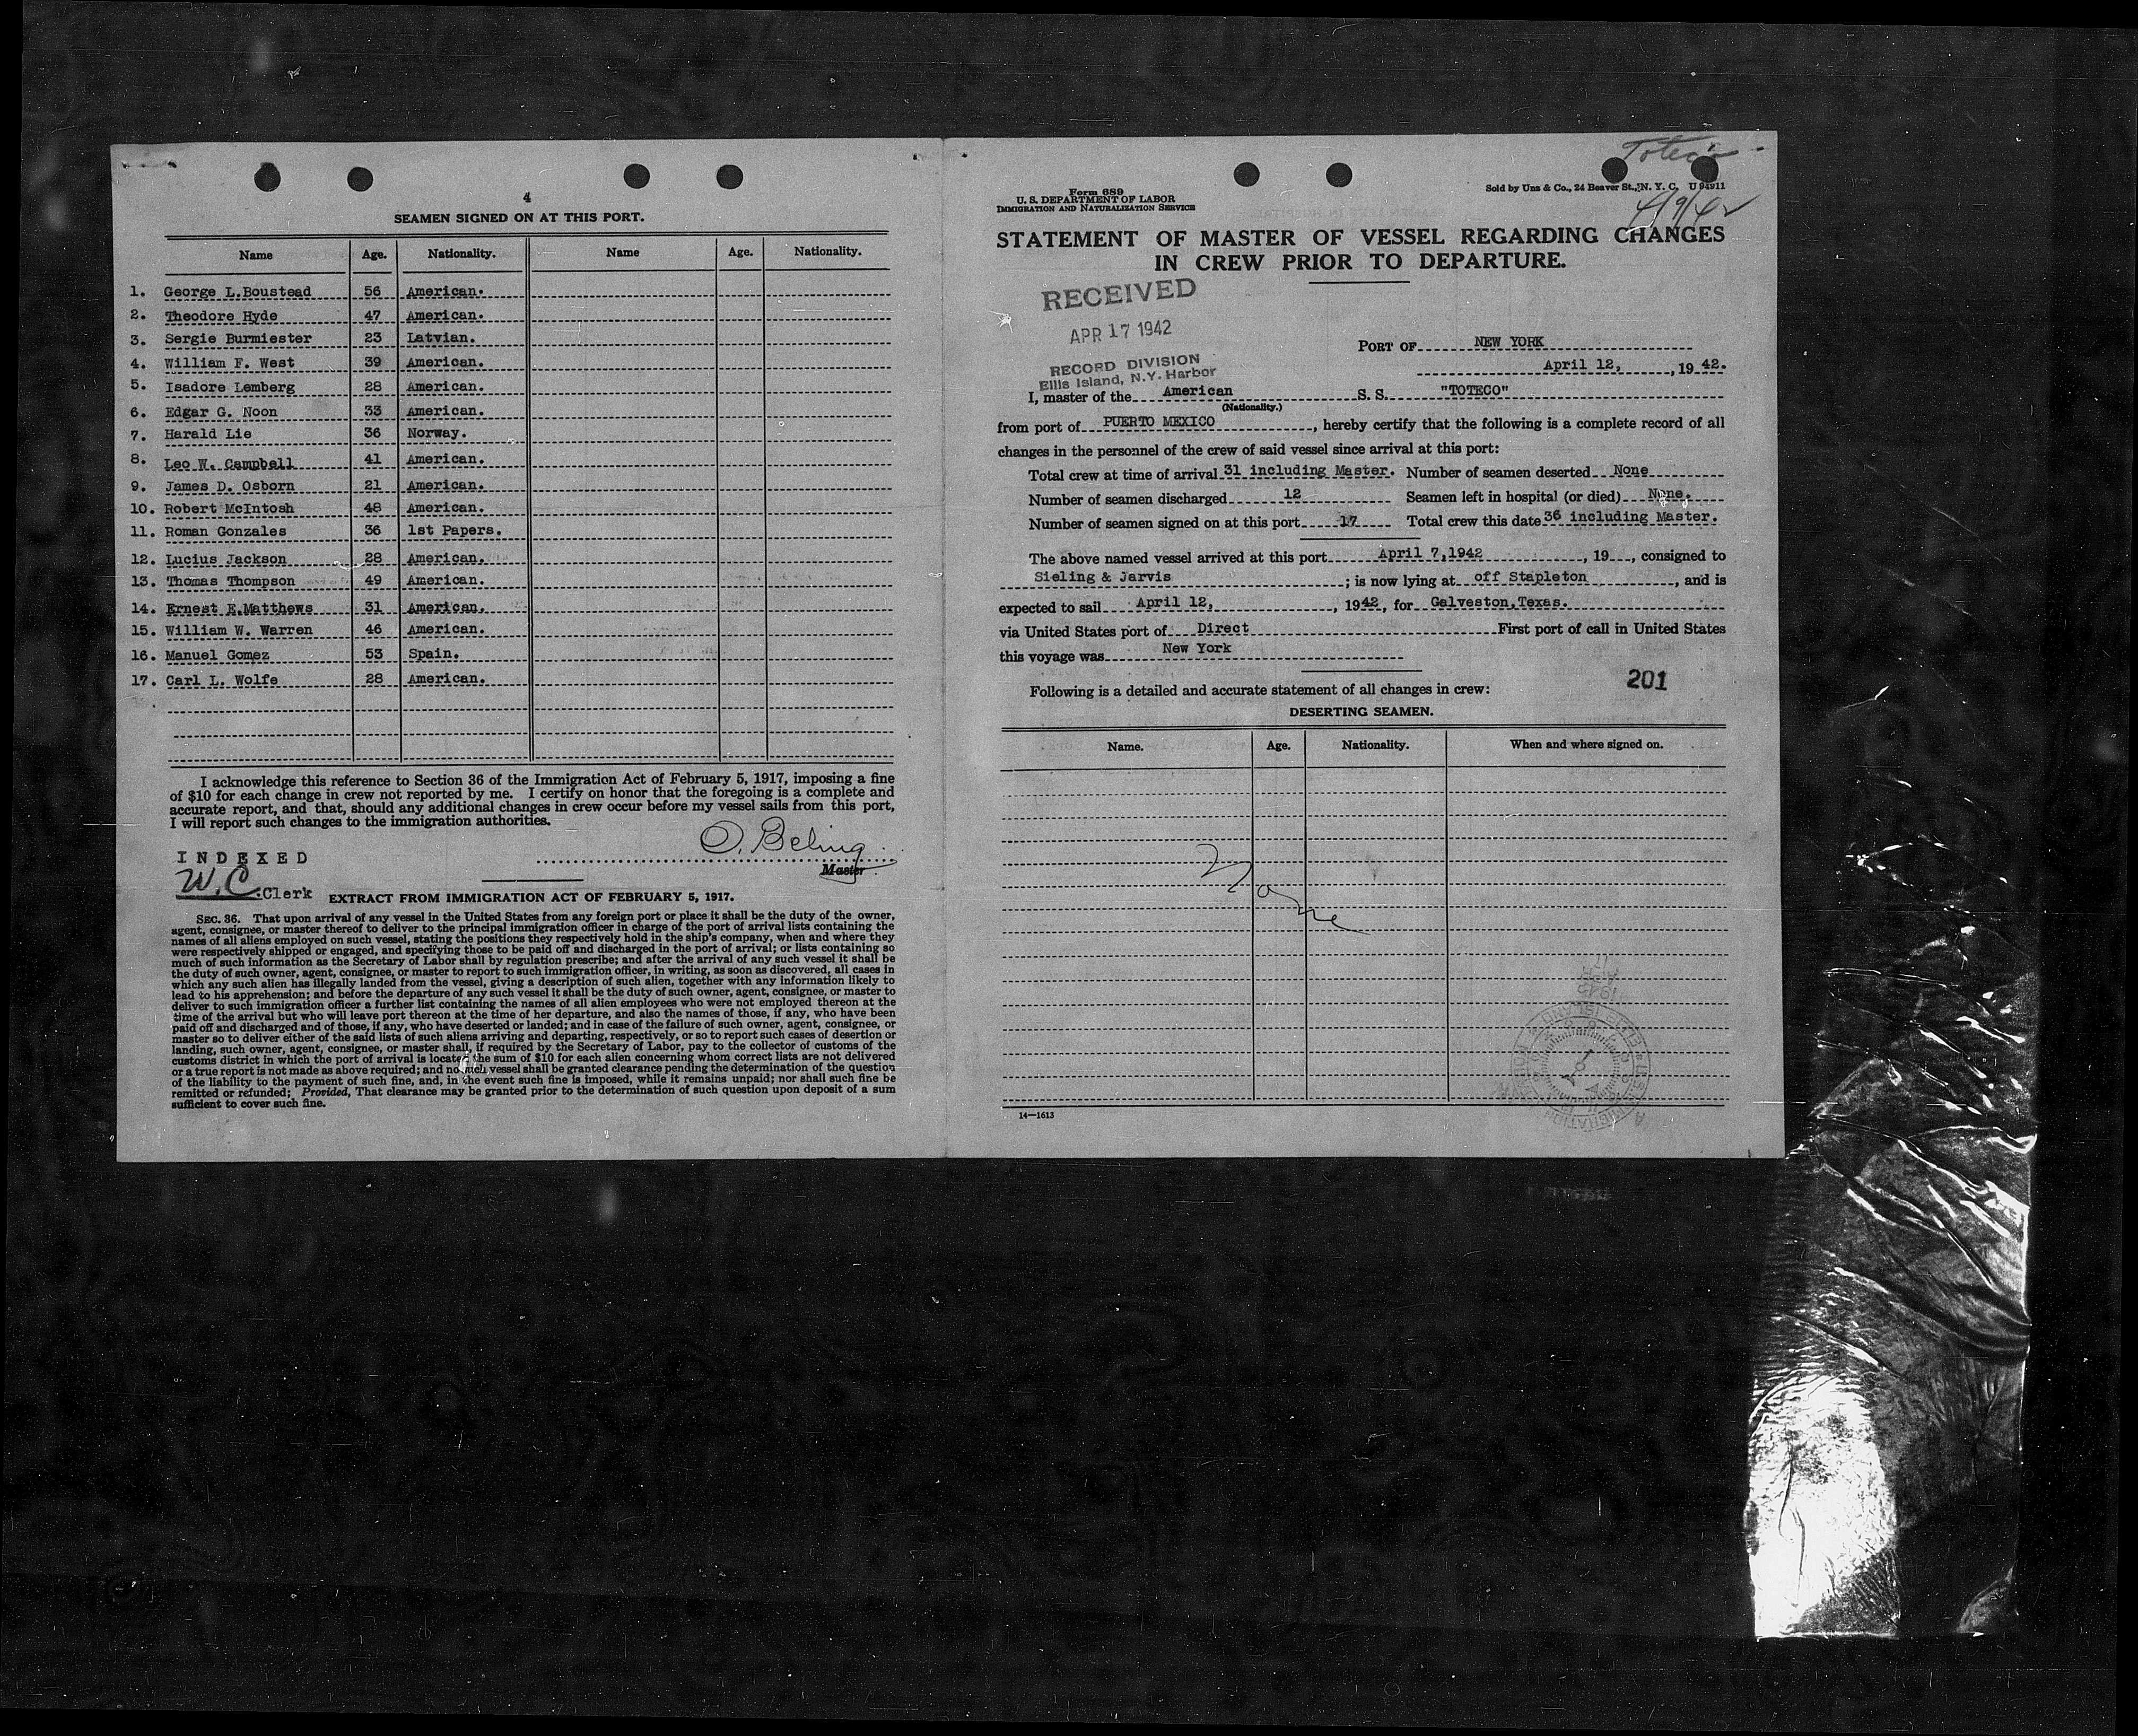 4
SEAMEN SIGNED ON AT THIS PORT.
Name Age. Nationality. Name Age. Nationality.
1. George L.Boustead 56 American.
2. Theodore Hyde 47 American.
3. Sergie Burmiester 23 Latvian.
4. William F. West 39 American.
5. Isadore Lemberg 28 American.
6. Edgar G. Noon 33 American.
7. Harald Lie 36 Norway.
8. Leo W. Campbell 41 American.
9. James D. Osborn 21 American.
10. Robert McIntosh 48 American.
11. Roman Gonzales 36 1st Papers.
12. Lucius Jackson 28 American.
13. Thomas Thompson 49 American.
14. Ernest E.Matthews 31 American.
15. William W. Warren 46 American.
16. Manuel Gomez 53 Spain.
17. Carl L. Wolfe 28 American.
I acknowledge this reference to Section 36 of the Immigration Act of February 5, 1917, imposing a fine
of $10 for each change in crew not reported by me. I certify on honor that the foregoing is a complete and
accurate report, and that, should any additional changes in crew occur before my vessel sails from this port,
I will report such changes to the immigration authorities.
O. Beling
Master
INDEXED
W.C. Clerk
EXTRACT FROM IMMIGRATION ACT OF FEBRUARY 5, 1917.
SEC. 36. That upon arrival of any vessel in the United States from any foreign port or place it shall be the duty of the owner,
agent, consignee, or master thereof to deliver to the principal immigration officer in charge of the port of arrival lists containing the
names of all aliens employed on such vessel, stating the positions they respectively hold in the ship's company, when and where they
were respectively shipped or engaged, and specifying those to be paid off and discharged in the port of arrival; or lists containing so
much of such information as the Secretary of Labor shall by regulation prescribe; and after the arrival of any such vessel it shall be
the duty of such owner, agent, consignee, or master to report to such immigration officer, in writing, as soon as discovered, all cases in
which any such alien has illegally landed from the vessel, giving a description of such alien, together with any information likely to
lead to his apprehension; and before the departure of any such vessel it shall be the duty of such owner, agent, consignee, or master to
deliver to such immigration officer a further list containing the names of all alien employees who were not employed thereon at the
time of the arrival but who will leave port thereon at the time of her departure, and also the names of those, if any, who have been
paid off and discharged and of those, if any, who have deserted or landed; and in case of the failure of such owner, agent, consignee, or
master so to deliver either of the said lists of such aliens arriving and departing, respectively, or so to report such cases of desertion or
landing, such owner, agent, consignee, or master shall, if required by the Secretary of Labor, pay to the collector of customs of the
customs district in which the port of arrival is located the sum of $10 for each alien concerning whom correct lists are not delivered
or a true report is not made as above required; and no such vessel shall be granted clearance pending the determination of the question
of the liability to the payment of such fine, and, in the event such fine is imposed, while it remains unpaid; nor shall such fine be
remitted or refunded; Provided, That clearance may be granted prior to the determination of such question upon deposit of a sum
sufficient to cover such fine.
Toteco
4/9/42
Form 689
U. S. DEPARTMENT OF LABOR
IMMIGRATION AND NATURALIZATION SERVICE
Sold by Unz & Co., 24 Beaver St., N. Y. C. U 94911
STATEMENT OF MASTER OF VESSEL REGARDING CHANGES
IN CREW PRIOR TO DEPARTURE.
RECEIVED
APR 17 1942
RECORD DIVISION
Ellis Island, N.Y. Harbor
PORT OF NEW YORK
April 12, , 19 42.
I, master of the American S. S. "TOTECO"
(Nationality.)
from port of PUERTO MEXICO , hereby certify that the following is a complete record of all
changes in the personnel of the crew of said vessel since arrival at this port:
Total crew at time of arrival 31 including Master. Number of seamen deserted None
Number of seamen discharged 12 Seamen left in hospital (or died) None.
Number of seamen signed on at this port 17 Total crew this date 36 including Master.
The above named vessel arrived at this port April 7,1942 , 19 , consigned to
Sieling & Jarvis ; is now lying at off Stapleton , and is
expected to sail April 12, , 1942, for Galveston,Texas.
via United States port of Direct First port of call in United States
this voyage was New York
201
Following is a detailed and accurate statement of all changes in crew:
DESERTING SEAMEN.
Name. Age. Nationality. When and where signed on.
None
14—1613